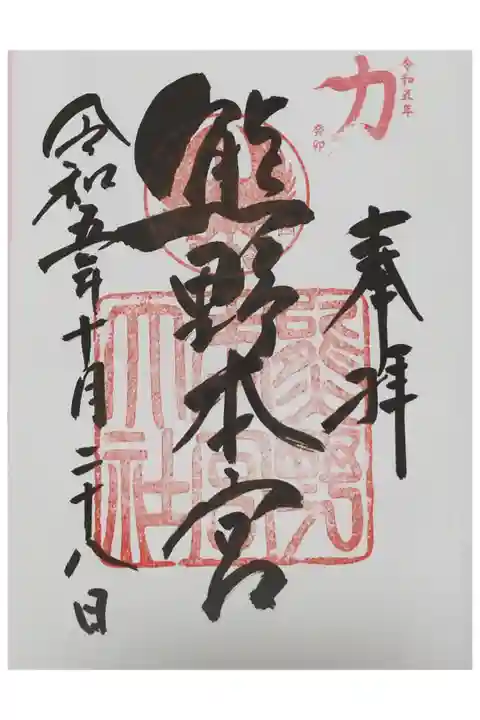 力
令和五年
癸卯
奉拝
熊野本宮
熊野本宮大社
令和五年十月二十八日